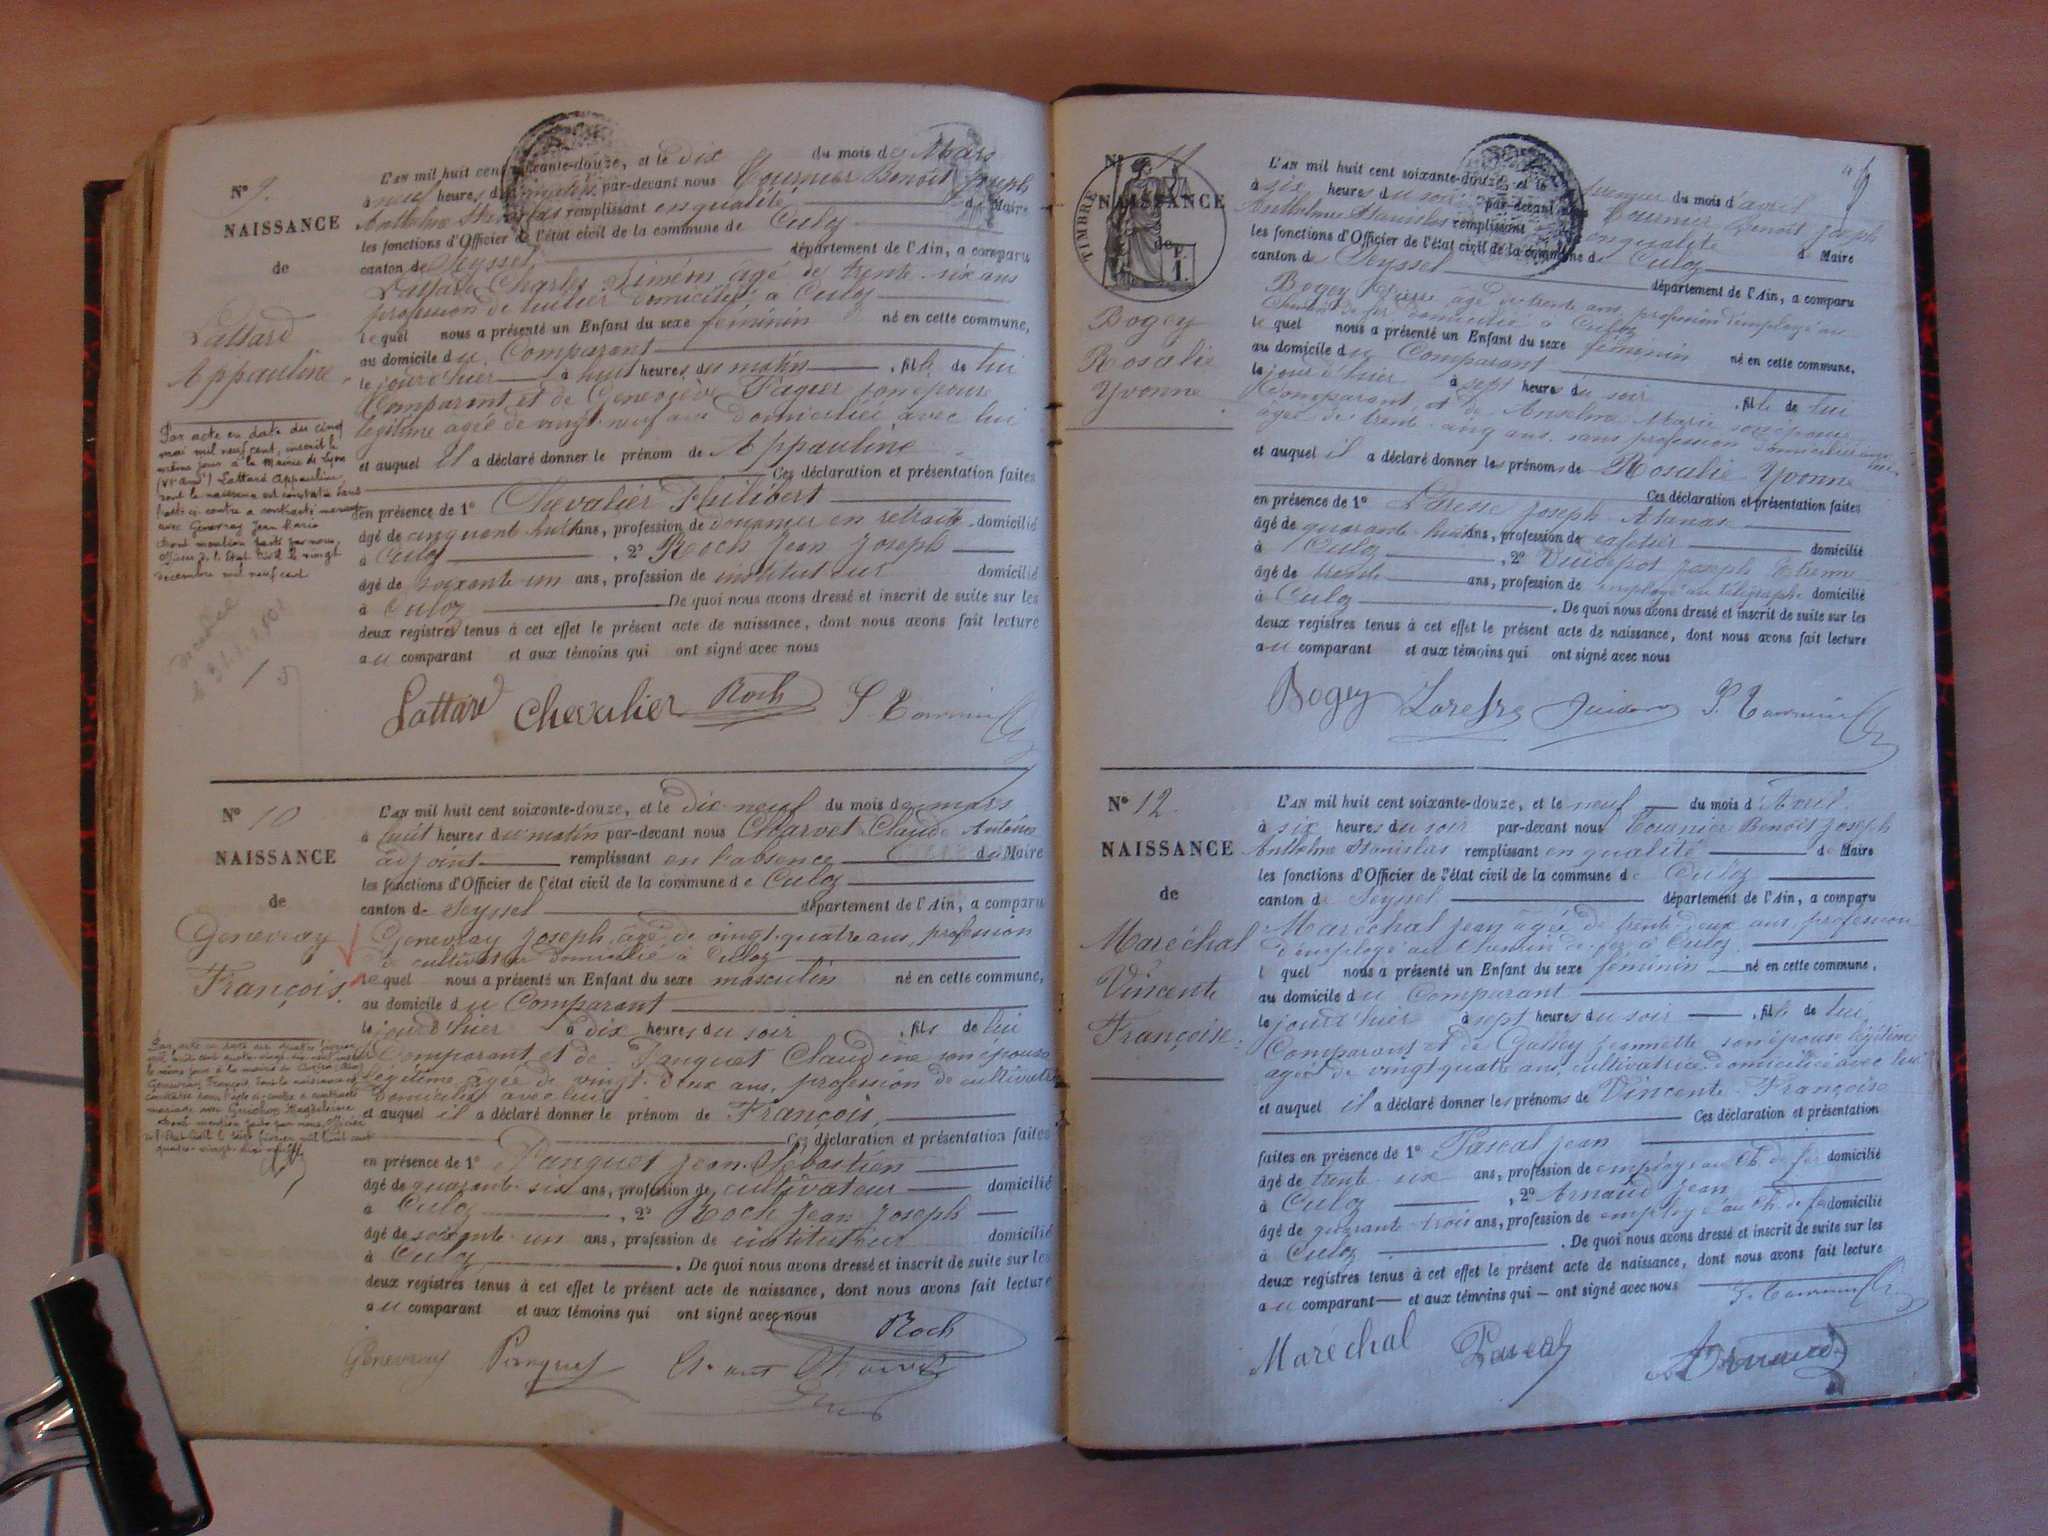 N° 9.
NAISSANCE
de
Lattard
Appauline
L'AN mil huit cent soixante-douze, et le dix du mois de Mars
à neuf heures du matin par-devant nous Tournier Benoit Joseph
Anthelme Stanislas remplissant en qualité de Maire
les fonctions d'Officier de l'état civil de la commune de Culoz
canton de Seyssel département de l'Ain, a comparu
Lattard Charles Siméon âgé de trente-six ans
profession de luitier domicilié à Culoz
lequel nous a présenté un Enfant du sexe féminin né en cette commune,
au domicile du Comparant
le jour d'hier à huit heures du matin, fille de lui
Comparant et de Geneviève Pagier son épouse
légitime agée de vingt-neuf ans domiciliée avec lui
et auquel il a déclaré donner le prénom de Appauline
Ces déclaration et présentation faites
en présence de 1° Chevalier Philibert
âgé de cinquante huit ans, profession de douanier en retraite domicilié
à Culoz, 2° Roch Jean Joseph
âgé de soixante un ans, profession de instituteur domicilié
à Culoz De quoi nous avons dressé et inscrit de suite sur les
deux registres tenus à cet effet le présent acte de naissance, dont nous avons fait lecture
au comparant et aux témoins qui ont signé avec nous
Lattard Chevalier Roch
Par acte en date du cinq
mai mil neuf cent, inscrit le
même jour à la Mairie de Lyon
Lattard Appauline
dont la naissance est constatée dans
l'acte ci-contre a contracté mariage
avec Genevray Jean Marie
Dont mention faite par nous,
Officier de l'Etat Civil le vingt
décembre mil neuf cent
N° 10
NAISSANCE
de
Genevray
François
L'AN mil huit cent soixante-douze, et le dix-neuf du mois de mars
à huit heures du matin par-devant nous Charvet Claude Antoine
adjoint remplissant en l'absence du Maire
les fonctions d'Officier de l'état civil de la commune de Culoz
canton de Seyssel département de l'Ain, a comparu
Genevray Joseph, âgé de vingt-quatre ans, profession
de cultivateur domicilié à Culoz
lequel nous a présenté un Enfant du sexe masculin né en cette commune,
au domicile du Comparant
le jour d'hier à dix heures du soir, fils de lui
Comparant et de Panquet Claudine son épouse
légitime âgée de vingt-deux ans, profession de cultivatrice
domiciliée avec lui
et auquel il a déclaré donner le prénom de François,
Ces déclaration et présentation faites
en présence de 1° Panquet Jean-Sébastien
âgé de quarante-six ans, profession de cultivateur domicilié
à Culoz, 2° Roch Jean Joseph
âgé de soixante un ans, profession de instituteur domicilié
à Culoz. De quoi nous avons dressé et inscrit de suite sur les
deux registres tenus à cet effet le présent acte de naissance, dont nous avons fait lecture
au comparant et aux témoins qui ont signé avec nous
Roch
Genevray Panquet
Par acte en date du quatre février
mil huit cent quatre-vingt-dix-neuf
le même jour à la mairie de
Genevray François, dont la naissance est
constatée dans l'acte ci-contre a contracté
mariage avec Magdeleine
Dont mention faite par nous, Officier
de l'Etat Civil le février mil huit cent
quatre-vingt-dix-neuf
N° 11
NAISSANCE
de
TIMBRE
Bogey
Rosalie
Yvonne
L'AN mil huit cent soixante-douze, et le premier du mois d'avril
à six heures du soir par-devant Tournier Benoit Joseph
Anthelme Stanislas remplissant en qualité de Maire
les fonctions d'Officier de l'état civil de la commune de Culoz
canton de Seyssel département de l'Ain, a comparu
Bogey Pierre âgé de trente ans, profession d'employé au
Chemin de fer domicilié à Culoz
lequel nous a présenté un Enfant du sexe féminin né en cette commune,
au domicile du Comparant
le jour d'hier à sept heures du soir, fille de lui
Comparant, et de Anselme Marie son épouse
agée de trente-cinq ans, sans profession domiciliée avec lui
et auquel il a déclaré donner les prénoms de Rosalie Yvonne
Ces déclaration et présentation faites
en présence de 1° Joseph
âgé de quarante-huit ans, profession de cafetier domicilié
à Culoz, 2° Joseph Etienne
âgé de trente ans, profession de employé au télégraphe domicilié
à Culoz. De quoi nous avons dressé et inscrit de suite sur les
deux registres tenus à cet effet le présent acte de naissance, dont nous avons fait lecture
au comparant et aux témoins qui ont signé avec nous
Bogey
N° 12.
NAISSANCE
de
Maréchal
Vincente
Françoise
L'AN mil huit cent soixante-douze, et le neuf du mois d'Avril
à six heures du soir par-devant nous Tournier Benoit Joseph
Anthelme Stanislas remplissant en qualité de Maire
les fonctions d'Officier de l'état civil de la commune de Culoz
canton de Seyssel département de l'Ain, a comparu
Maréchal Jean âgé de trente-deux ans, profession
d'employé au Chemin de fer à Culoz
l quel nous a présenté un Enfant du sexe féminin né en cette commune,
au domicile du Comparant
le jour d'hier à sept heures du soir, fille de lui
Comparant et de Jeannette son épouse légitime
agée de vingt quatre ans, cultivatrice domiciliée avec lui
et auquel il a déclaré donner les prénoms de Vincente Françoise
Ces déclaration et présentation
faites en présence de 1° Pascal Jean
âgé de trente-six ans, profession de employé au Ch. de fer domicilié
à Culoz, 2° Arnaud Jean
âgé de quarante-trois ans, profession de employé au Ch. de fer domicilié
à Culoz. De quoi nous avons dressé et inscrit de suite sur les
deux registres tenus à cet effet le présent acte de naissance, dont nous avons fait lecture
au comparant et aux témoins qui ont signé avec nous
Maréchal Pascal Arnaud